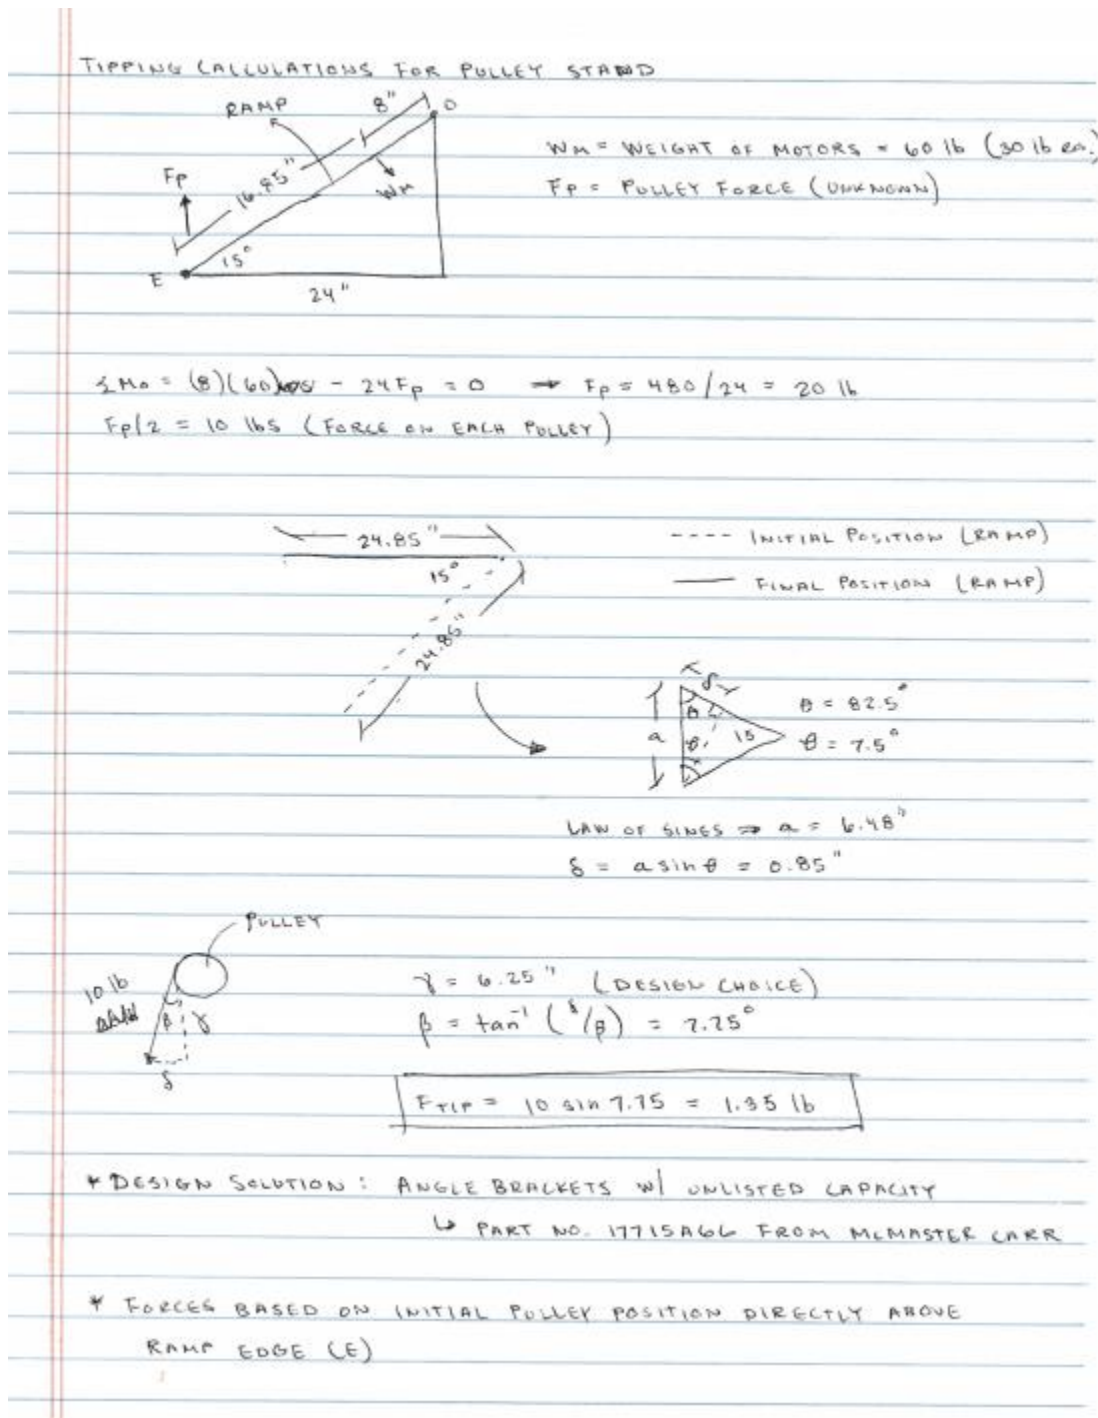 TIPPING CALCULATIONS FOR PULLEY STAND
RAMP
8"
O
16.85"
Fp
WM
15°
E
24"
WM = WEIGHT OF MOTORS = 60 lb (30 lb ea.)
FP = PULLEY FORCE (UNKNOWN)
ΣMo = (8)(60) - 24Fp = 0 → Fp = 480/24 = 20 lb
Fp/2 = 10 lbs (FORCE ON EACH PULLEY)
24.85"
15°
24.85"
---- INITIAL POSITION (RAMP)
—— FINAL POSITION (RAMP)
δ
a
θ
θ
15
θ = 82.5°
θ = 7.5°
LAW OF SINES ⇒ a = 6.48"
δ = a sin θ = 0.85"
PULLEY
10 lb
β
γ
δ
γ = 6.25" (DESIGN CHOICE)
β = tan⁻¹ (δ/β) = 7.75°
FTIP = 10 sin 7.75 = 1.35 lb
* DESIGN SOLUTION: ANGLE BRACKETS W/ UNLISTED CAPACITY
↳ PART NO. 17715A66 FROM MCMASTER CARR
* FORCES BASED ON INITIAL PULLEY POSITION DIRECTLY ABOVE
RAMP EDGE (E)